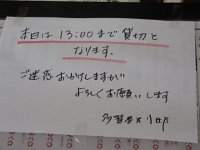 本日は 13:00まで貸切と
なります。
ご迷惑おかけしますが
よろしくお願いします